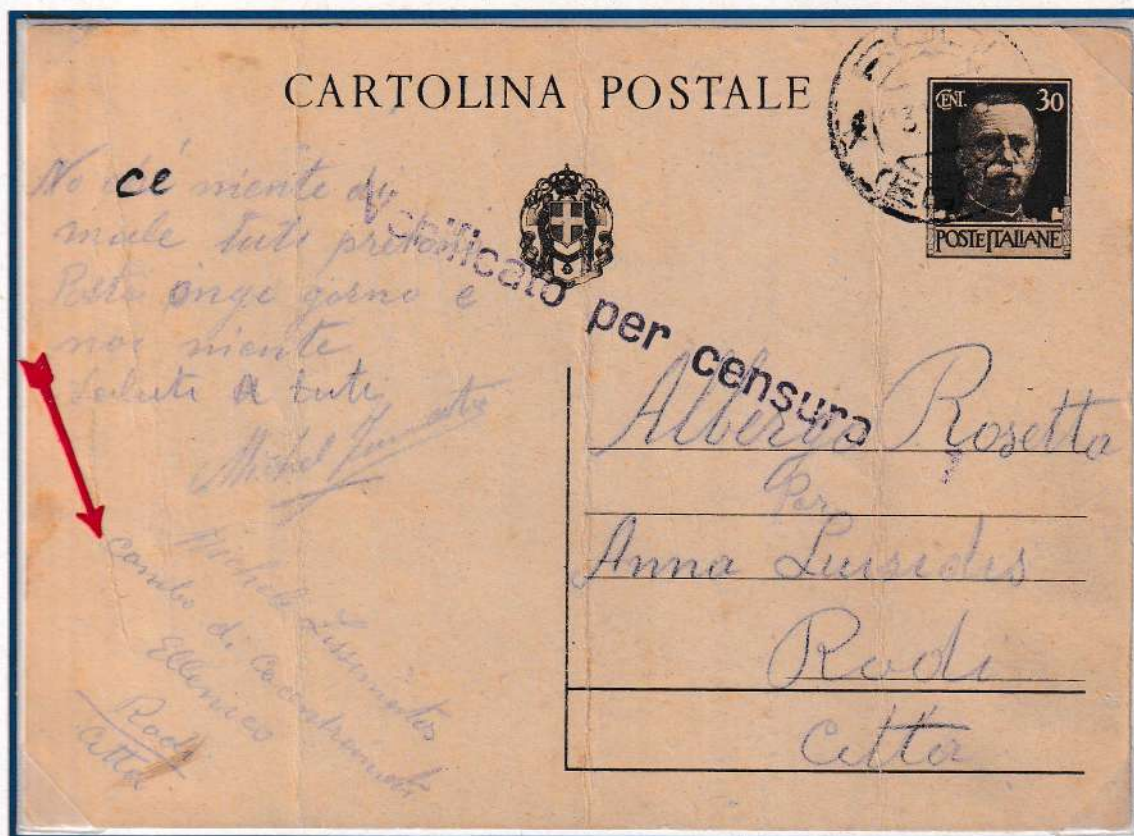 CARTOLINA POSTALE
CENT. 30
POSTE ITALIANE
Verificato per censura
No cé niente di
male tuti
Resta gorno e
noi niente
Saluti a tuti
Michel
Michele
campo di Concentramento
Ellenico
Rodi
Città
Albergo Rosetta
Per
Anna Luisidis
Rodi
Città